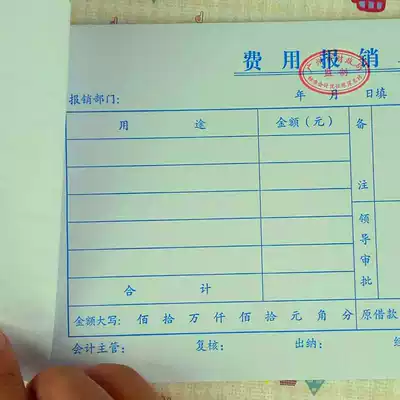 费 用 报 销
监 制
报销部门: 年 月 日填
用 途 金额(元) 备注
领导审批
合 计
金额大写: 佰 拾 万 仟 佰 拾 元 角 分 原借款
会计主管: 复核: 出纳: